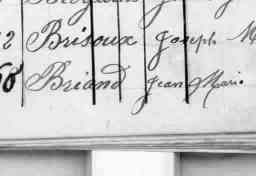 2 Brisoux Joseph M
68 Briand Jean Marie